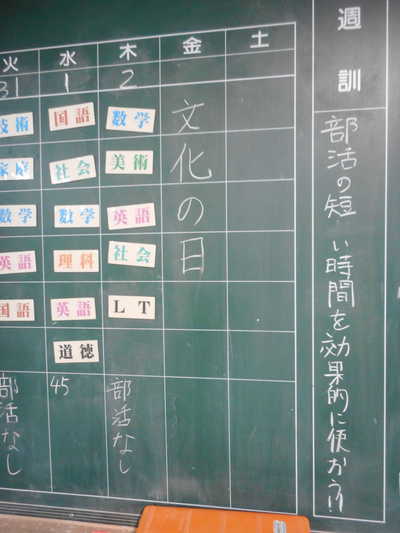 週訓
部活の短い時間を効果的に使かう!!
火 水 木 金 土
31 1 2
技術 国語 数学
家庭 社会 美術
数学 数学 英語
英語 理科 社会
国語 英語 LT
道徳
文化の日
部活なし 45 部活なし